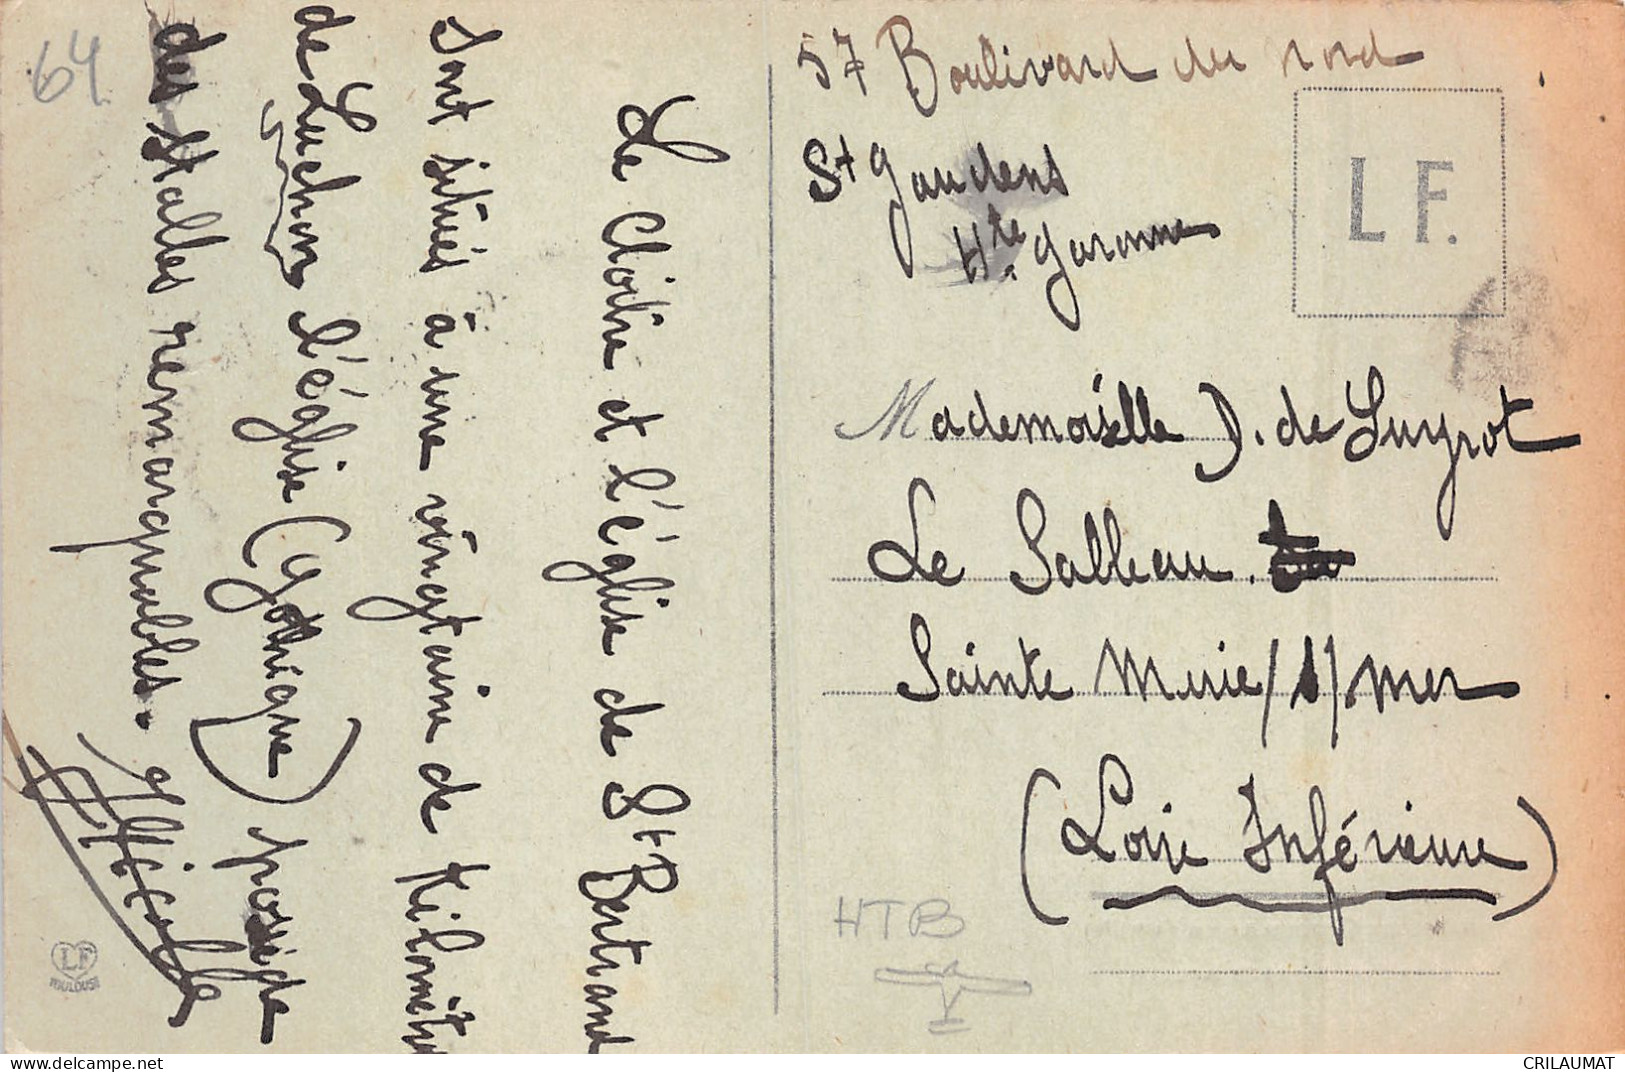 64
Le Cloitre et l'église de St Bertrand
sont situés à une vingtaine de Kilomètr
de Luchon l'église (gothique) possède
des stalles remarquables.
57 Boulivard du nord
St Gaudens
Hte Garonne
L F.
Mademoiselle D. de Suyrot
Le Sableau.
Sainte Marie /s/ mer
(Loire Inférieure)
HTB
LF
TOULOUSE
www.delcampe.net
CRILAUMAT